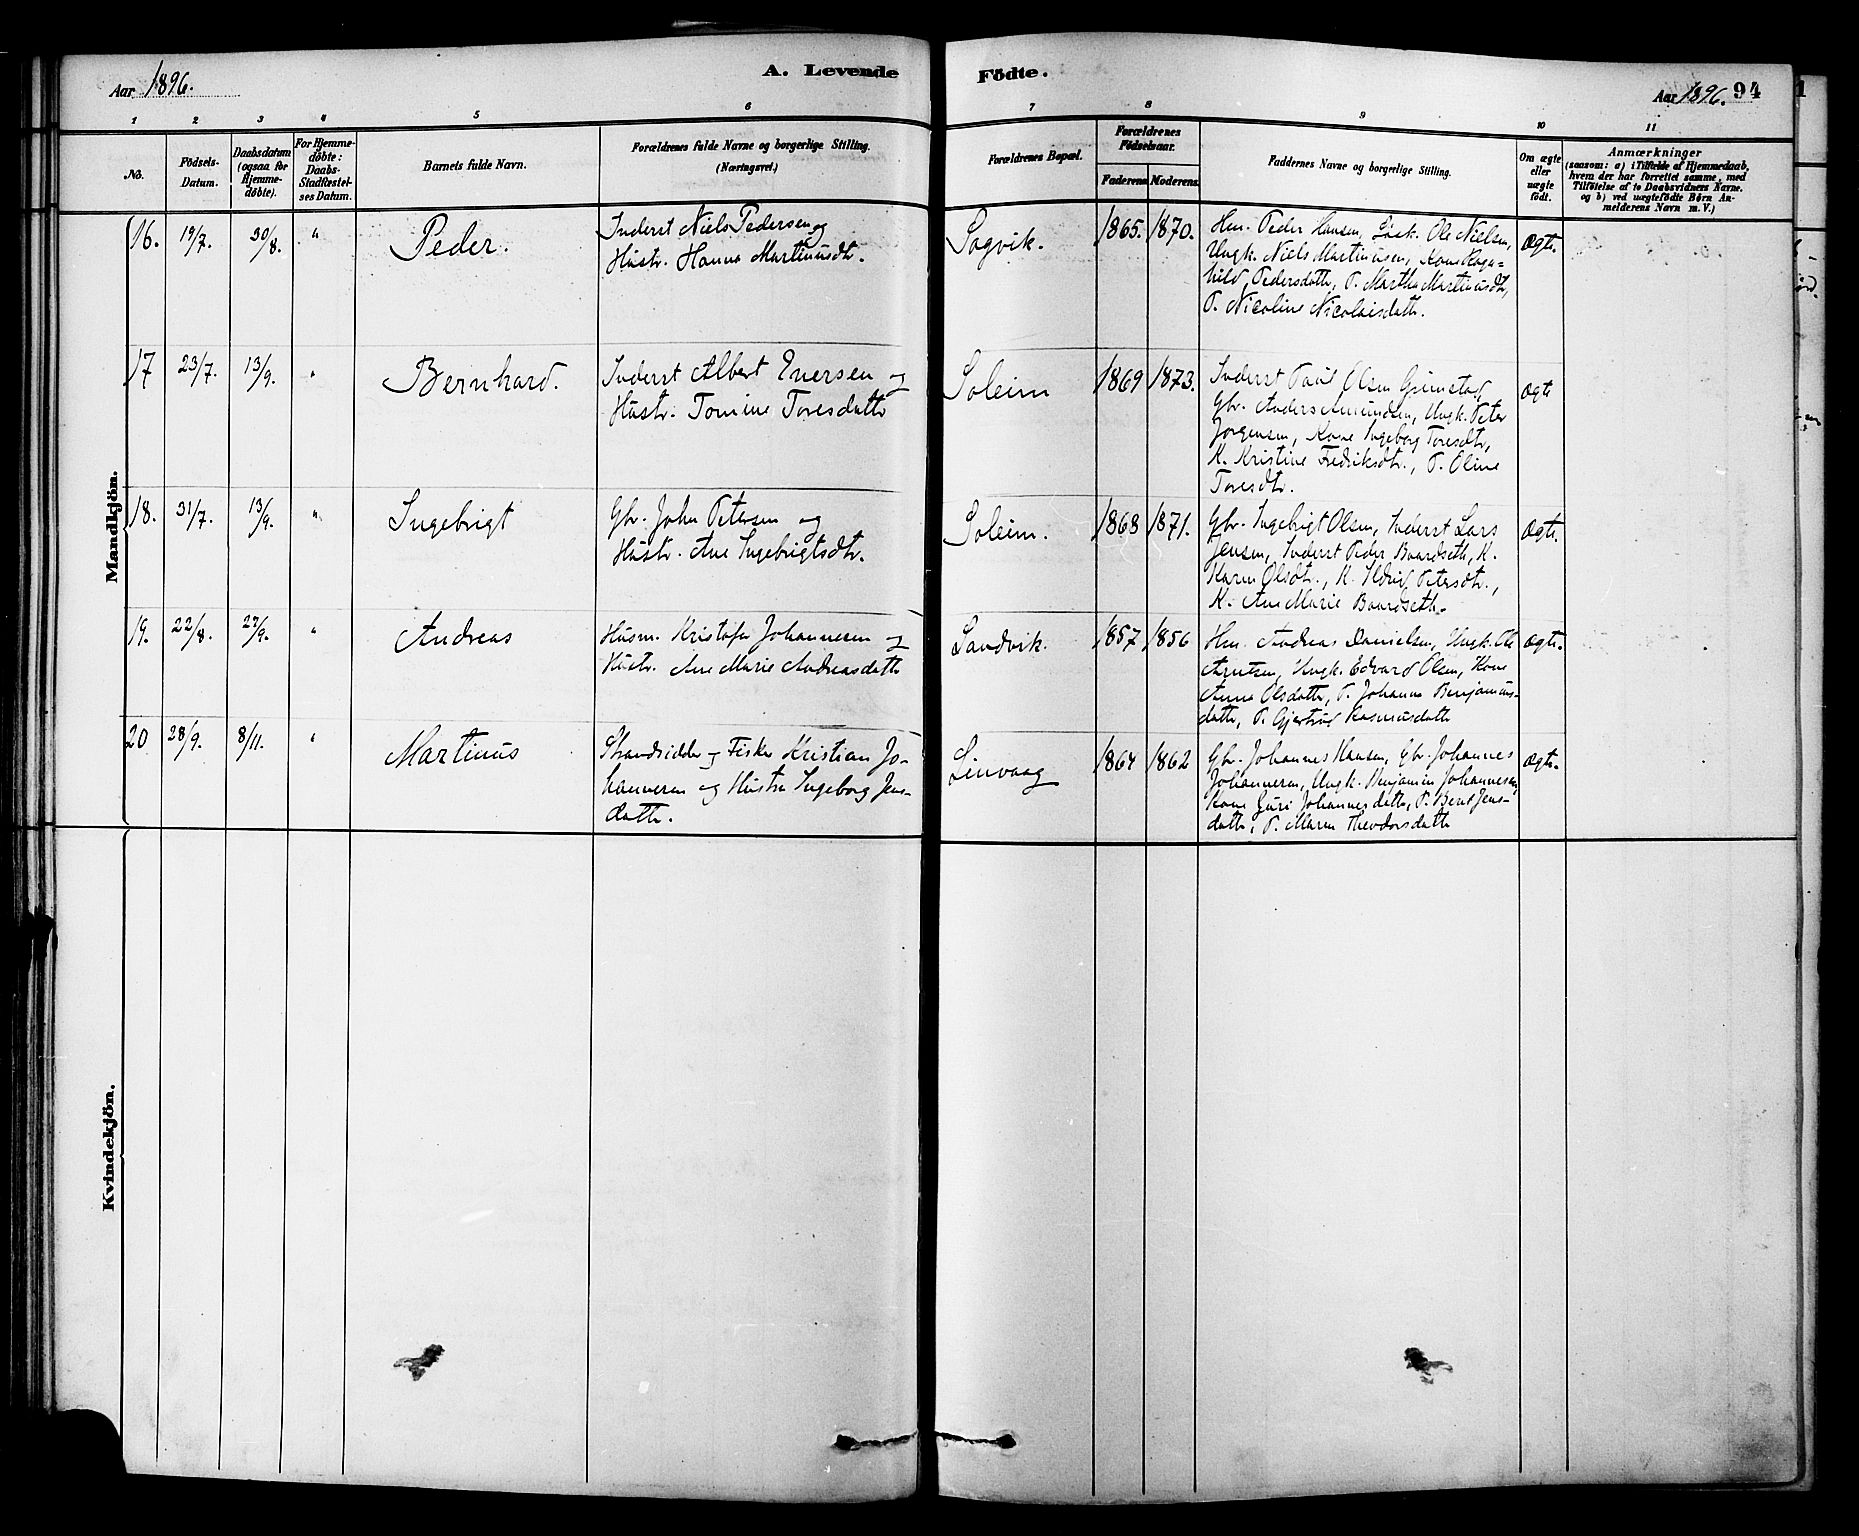 Aar 1896.
A. Levende
Födte.
Aar 1896. 94
1 2 3 4 5 6 7 8 9 10 11
No.
Födsels-
Datum.
Daabsdatum
(ogsaa for
Hjemme-
döbte).
For Hjemme-
döbte:
Daabs-
Stadfæstel-
ses Datum.
Barnets fulde Navn.
Forældrenes fulde Navne og borgerlige Stilling.
(Næringsvei.)
Forældrenes Bopæl.
Forældrenes
Födselsaar.
Faderens Moderens.
Faddernes Navne og borgerlige Stilling.
Om ægte
eller
uægte
födt.
Anmærkninger
(saasom: a) i Tilfælde af Hjemmedaab,
hvem der har forrettet samme, med
Tilföielse af to Daabsvidners Navne.
og b) ved uægtefödte Börn An-
melderens Navn m. V.)
Mandkjön.
16. 19/7. 30/8. " Peder.
Inderst Niels Pedersen og
Hustr. Hanna Martinusdtr.
Sagvik. 1865. 1870.
Hm. Peder Hansen, Løsk. Ole Nielsen,
Ungk. Niels Martinusen, Kone Ragn-
hild Pedersdattr, P. Martha Martinusdtr,
P. Nicoline Nicolaisdattr.
Ægte.
17 23/7. 13/9. " Bernhard.
Inderst Albert Iversen og
Hustr. Tomine Toresdattr
Soleim 1869 1873.
Inderst Paul Olsen Grimstad,
Gbr. Anders Amundsen, Ungk. Peter
Jorgensen, Kone Ingeborg Toresdtr,
K. Kristine Fredriksdtr., P. Oline
Toresdtr.
Ægte
18. 31/7. 13/9. " Ingebrigt
Gbr. John Petersen og
Hustr. Ane Ingebrigtsdtr.
Soleim. 1868 1871.
Gbr. Ingebrigt Olsen, Inderst Lars
Jensen, Inderst Peder Baardseth, K.
Karen Olsdtr., K. Ildrid Petersdtr.,
K. Ane Marie Baardseth.
Ægte.
19. 22/8. 27/9. " Andreas
Husm. Kristofer Johannesen og
Hustr. Ane Marie Andreasdattr
Sandvik. 1857 1856
Hm. Andreas Danielsen, Ungk. Ole
Arntsen, Ungk. Edvard Olsen, Kone
Anna Olsdattr, P. Johanna Benjamins-
dattr, P. Gjertrud Rasmusdattr
Ægte.
20 28/9. 8/11. " Martinus
Strandsidder og Fisker Kristian Jo-
hannesen og Hustru Ingeborg Jens-
dattr.
Linvaag 1864 1862
Gbr. Johannes Hansen, Gbr. Johannes
Johannesen, Ungk. Benjamin Johannesen,
Kone Guri Johannesdattr, P. Berit Jens-
dattr, P. Maren Theodorsdattr
Ægte.
Kvindekjön.